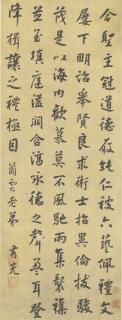 今聖主冠道德履純仁被六藝佩禮文
屢下明詔舉賢良求術士招異倫拔駿
茂是以海內歡慕莫不風馳雨集襲襍
並至填庭溢闕含淳詠德之聲盈耳登
降揖讓之禮極目